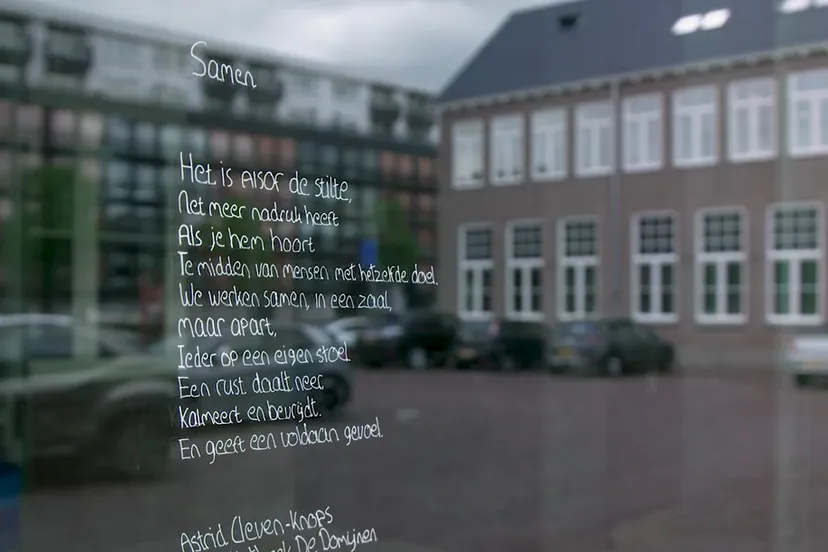 Samen
Het is Alsof de stilte,
Net meer nadruk heeft
Als je hem hoort
Te midden van mensen met hetzelfde doel.
We werken samen, in een zaal,
maar apart,
Ieder op een eigen stoel
Een rust daalt neer,
Kalmeert en bevrijdt.
En geeft een voldaan gevoel.
Astrid Cleven-Knops
De Domijnen